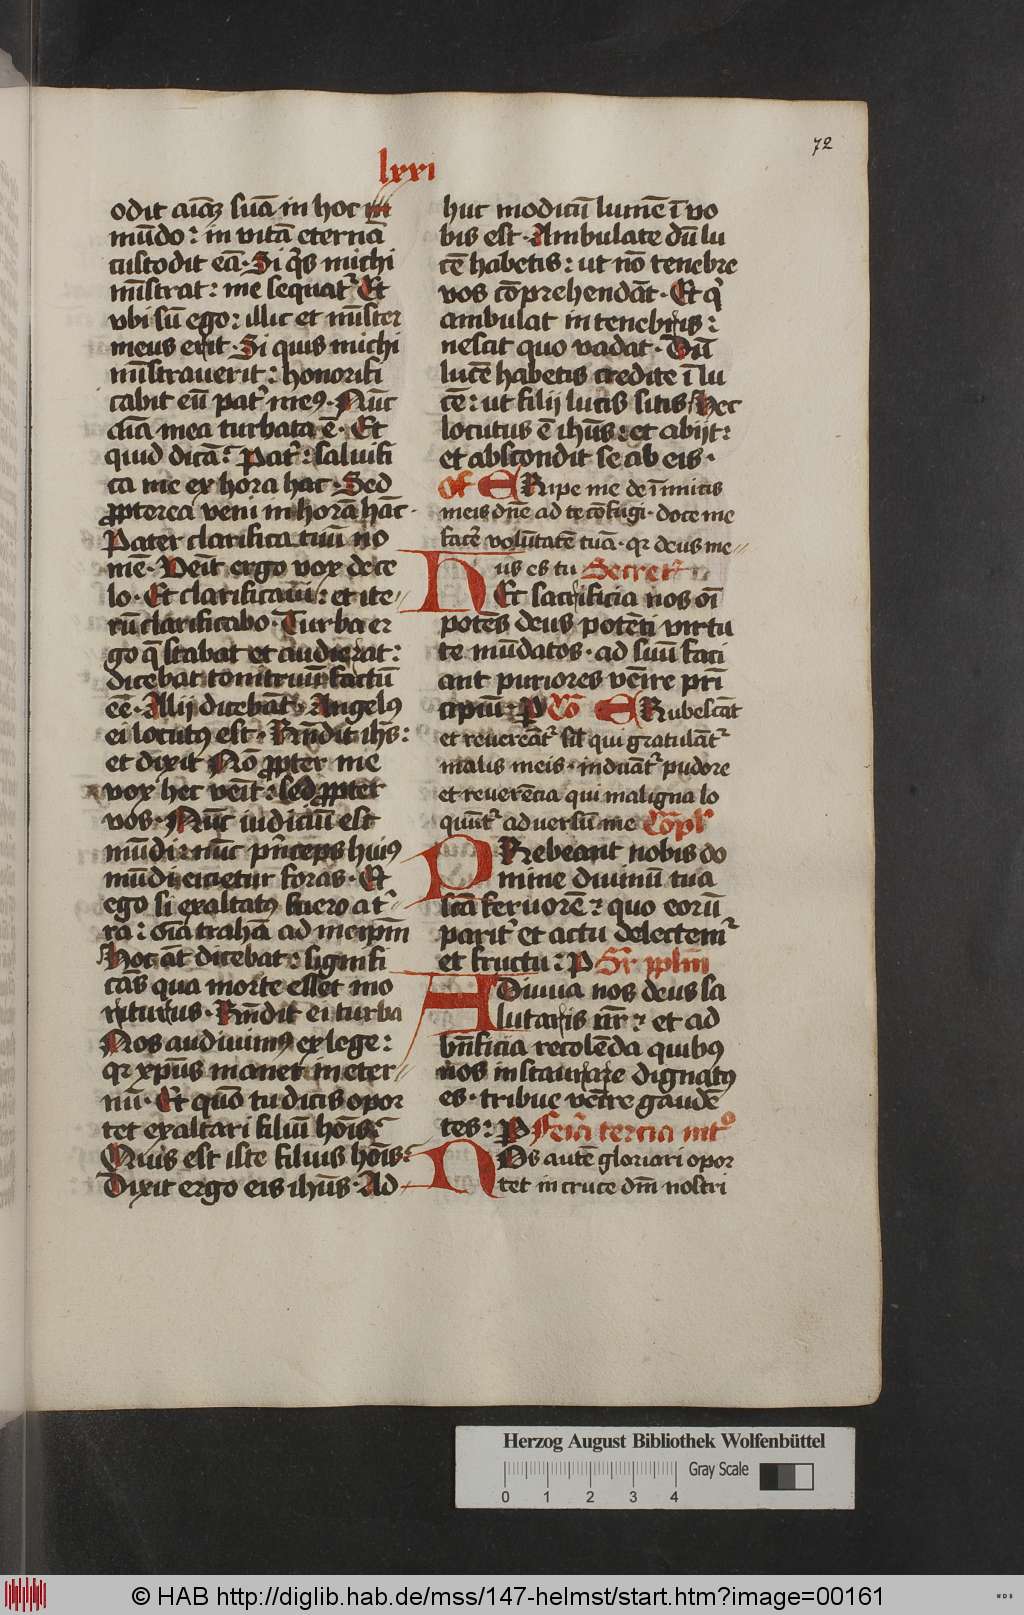 72
lxxi
odit aīaꝫ suā in hoc
mūdo: in vitā eternā
custodit eā. Si q̇s michi
mīstrat: me sequatᷣ Et
vbi sū ego: illic et mīster
meus erit. Si quis michi
mīstrauerit: honorifi
cabit eū patᷣ meꝰ. Nūc
aīa mea turbata ē. Et
quid dicā: Patᷣ: saluifi
ca me ex hora hac. Sed
ꝓpterea veni in horā hāc.
Pater clarifica tuū no
mē. Venīt ergo vox de ce
lo. Et clarificaui: et ite//
rū clarificabo. Turba er
go q̄ stabat et audierat:
dicebat tonitruū factū
eē. Alij dicebāt. Angelus
ei locutꝰ est. Rn̄dit ih̄s:
et dixit Nō ꝓpter me
vox hec venīt: sed ꝓpter
vos. Nūc iudiciū est
mūdi: nūc pn̄ceps huiꝰ
mūdi eicietur foras. Et
ego si exaltatꝰ fuero a tᷣ//
ra: oīa trahā ad meip̄m
Hoc āt dicebat: signifi
cās qua morte esset mo
riturus. Rn̄dit ei turba
Nos audiuimꝰ ex lege:
qꝛ xp̄us manet in eter//
nū. Et quō tu dicis opor
tet exaltari filiū hoīs:
Quis est iste filius hoīs:
Dixit ergo eis ihūs. Ad
huc modicū lumē ī vo
bis est. Ambulate dū lu
cē habetis: ut nō tenebre
vos cōprehendāt. Et q̇
ambulat in tenebris:
nescit quo vadat. Dū
lucē habetis credite ī lu
cē: ut filij lucis sitis Hec
locutus ē ihūs: et abijt:
et abscondit se ab eis.
Of ERipe me de inīmicis
meis dn̄e ad te cōfugi. doce me
facᷣe volūtatē tuā. qꝛ deus me//
us es tu Secretᷣ
HEc sacrificia nos oī
potēs deus potēti virtu
te mūdatos. ad suū faci
ant puriores venīre prī
cipiū. P Cō ERubescāt
et revereātᷣ sīl qui gratulātᷣ
malis meis. induātᷣ pudore
et reverēcia qui maligna lo
quūtᷣ adversū me Cōpl̄
PRebeant nobis do
mine diuinū tua
sc̄a feruorē ꝛ quo eorū
paritᷣ et actu delectemᷣ
et fructu: P Sr̄ pplm̄
ADiuua nos deus sa
lutaris nr̄ ꝛ et ad
bn̄ficia recolēda quibꝰ
nos instaurare dignatꝰ
es. tribue venīre gaudē
tes: P Feīa tercia intᷣo
NOs autē gloriari opor
tet in cruce dm̄ nostri
Herzog August Bibliothek Wolfenbüttel
Gray Scale
0 1 2 3 4
© HAB http://diglib.hab.de/mss/147-helmst/start.htm?image=00161